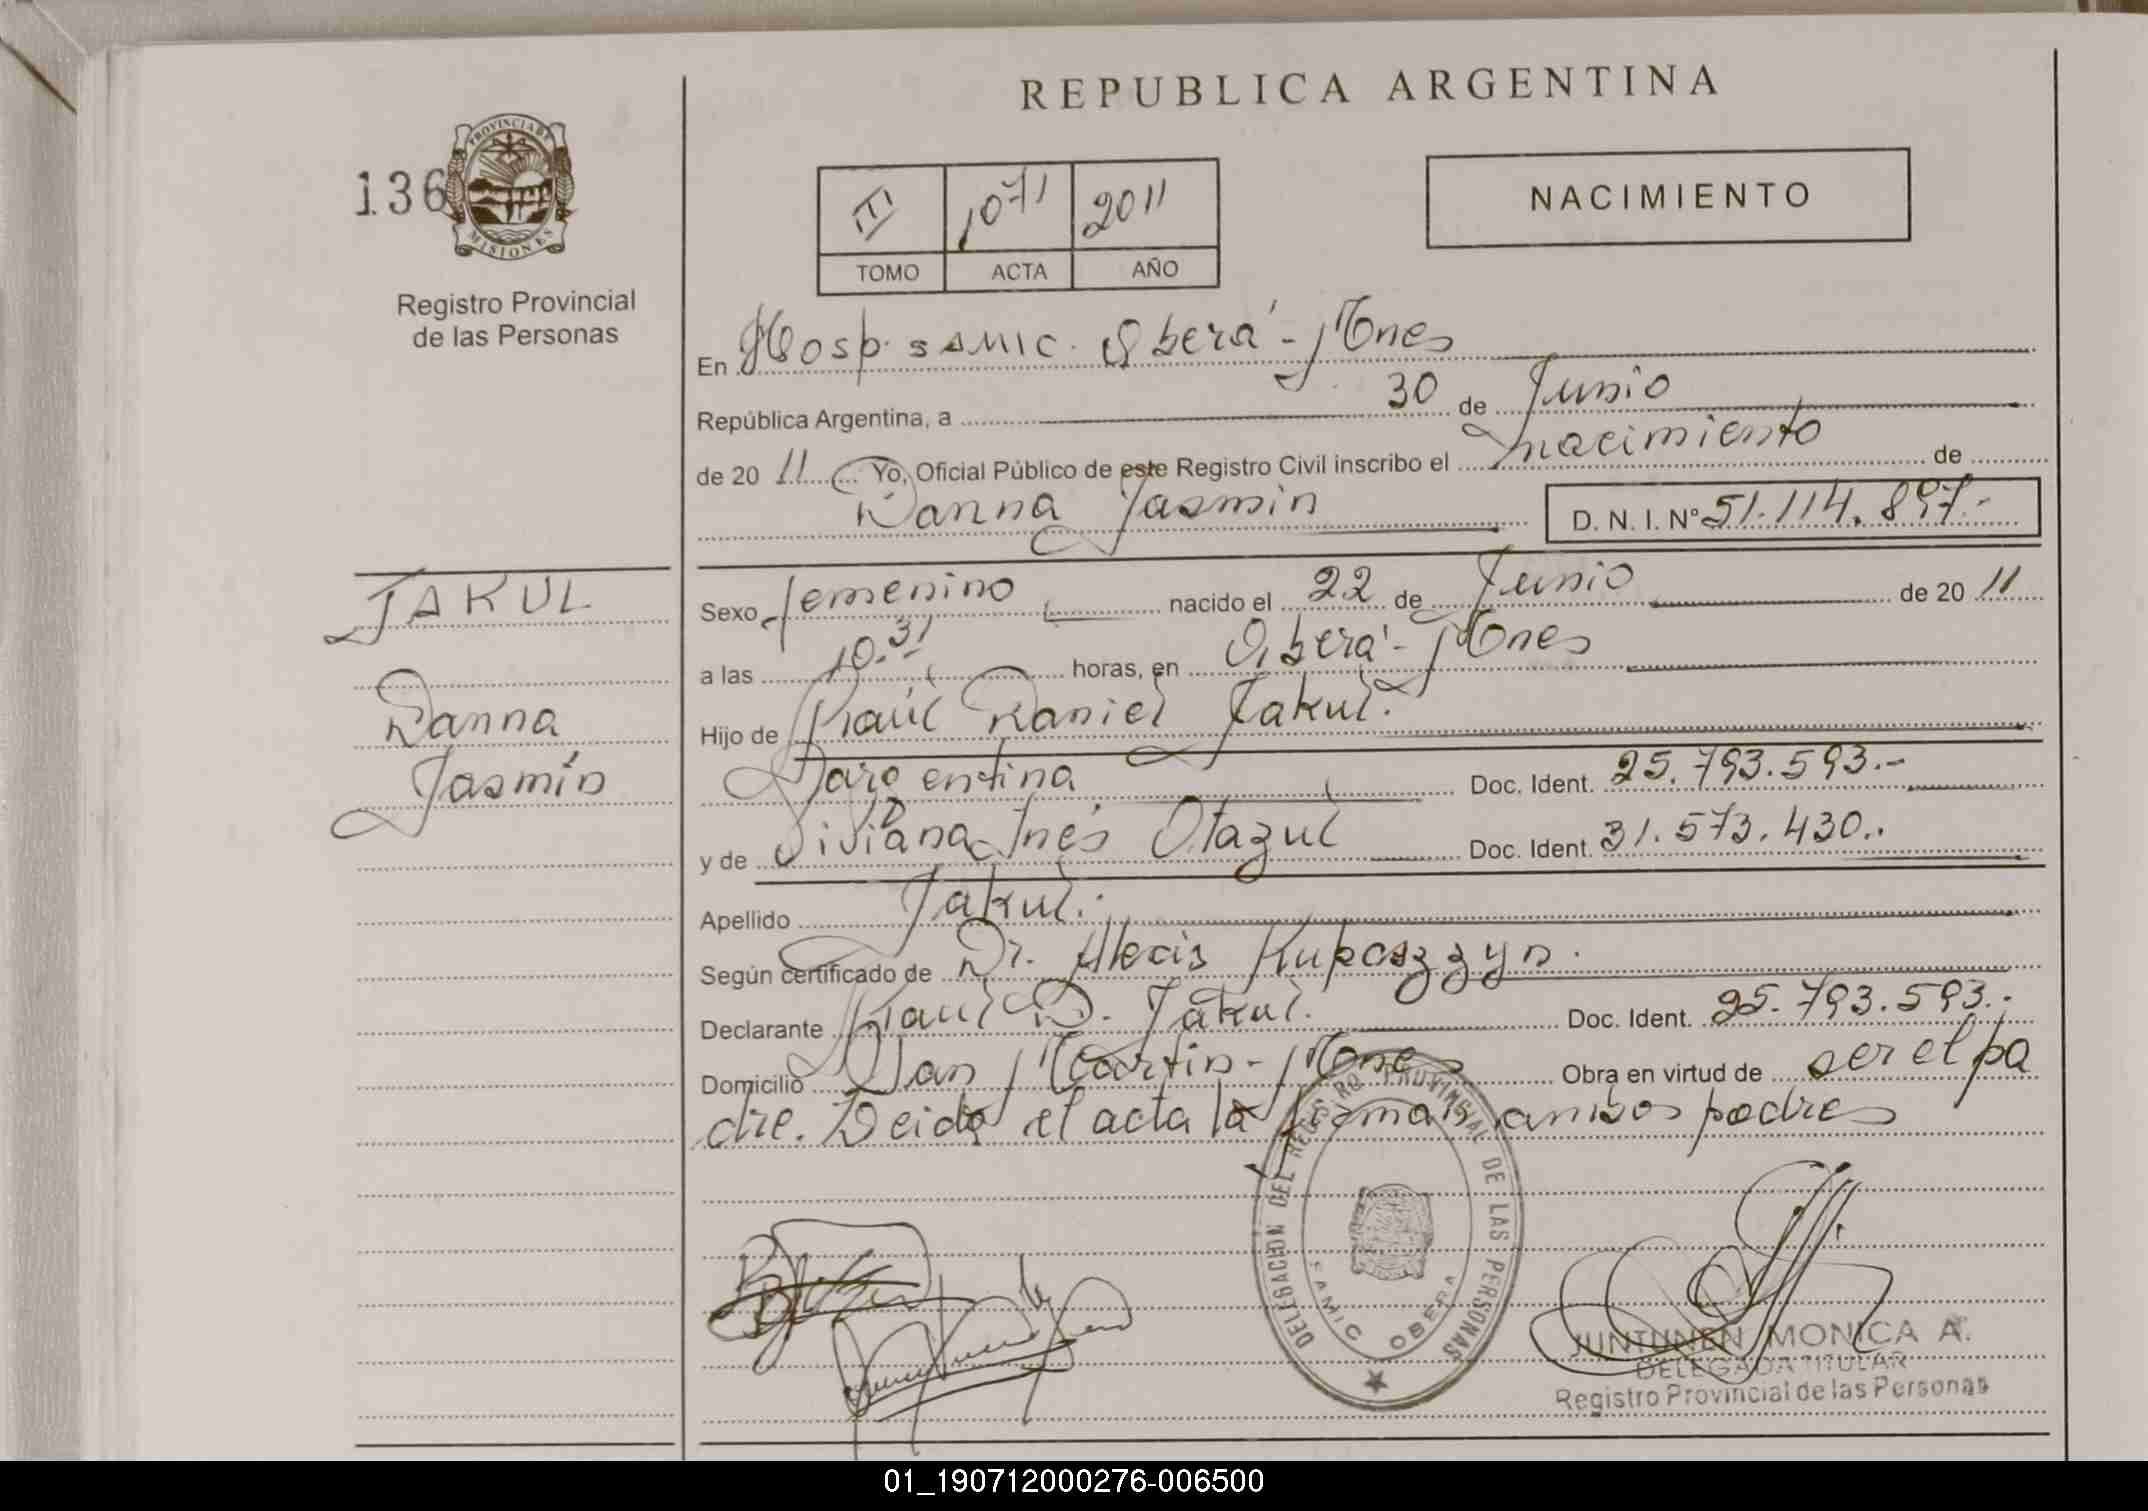 REPUBLICA ARGENTINA
136
PROVINCIA DE
MISIONES
Registro Provincial
de las Personas
III 1071 2011
TOMO ACTA AÑO
NACIMIENTO
En Hosp. SAMIC. Oberá - Mnes
República Argentina, a 30 de Junio
de 2011 Yo, Oficial Público de este Registro Civil inscribo el nacimiento de
Danna Jasmin D. N. I. Nº 51.114.897.-
JAKUL
Danna
Jasmín
Sexo femenino nacido el 22 de Junio de 2011
a las 10.31 horas, en Oberá - Mnes
Hijo de Raúl Daniel Jakul.
argentina Doc. Ident. 25.793.593.-
y de Viviana Inés Otazul Doc. Ident. 31.573.430..
Apellido Jakul.
Según certificado de Dr. Alecis
Declarante Raul D. Jakul. Doc. Ident. 25.793.593.-
Domicilio San Martin - Mnes Obra en virtud de ser el pa
dre. Leida el acta la firman ambos padres
DELEGACION DEL REGISTRO PROVINCIAL DE LAS PERSONAS
SAMIC OBERA
JUNTUNEN MONICA A.
DELEGADA TITULAR
Registro Provincial de las Personas
01_190712000276-006500